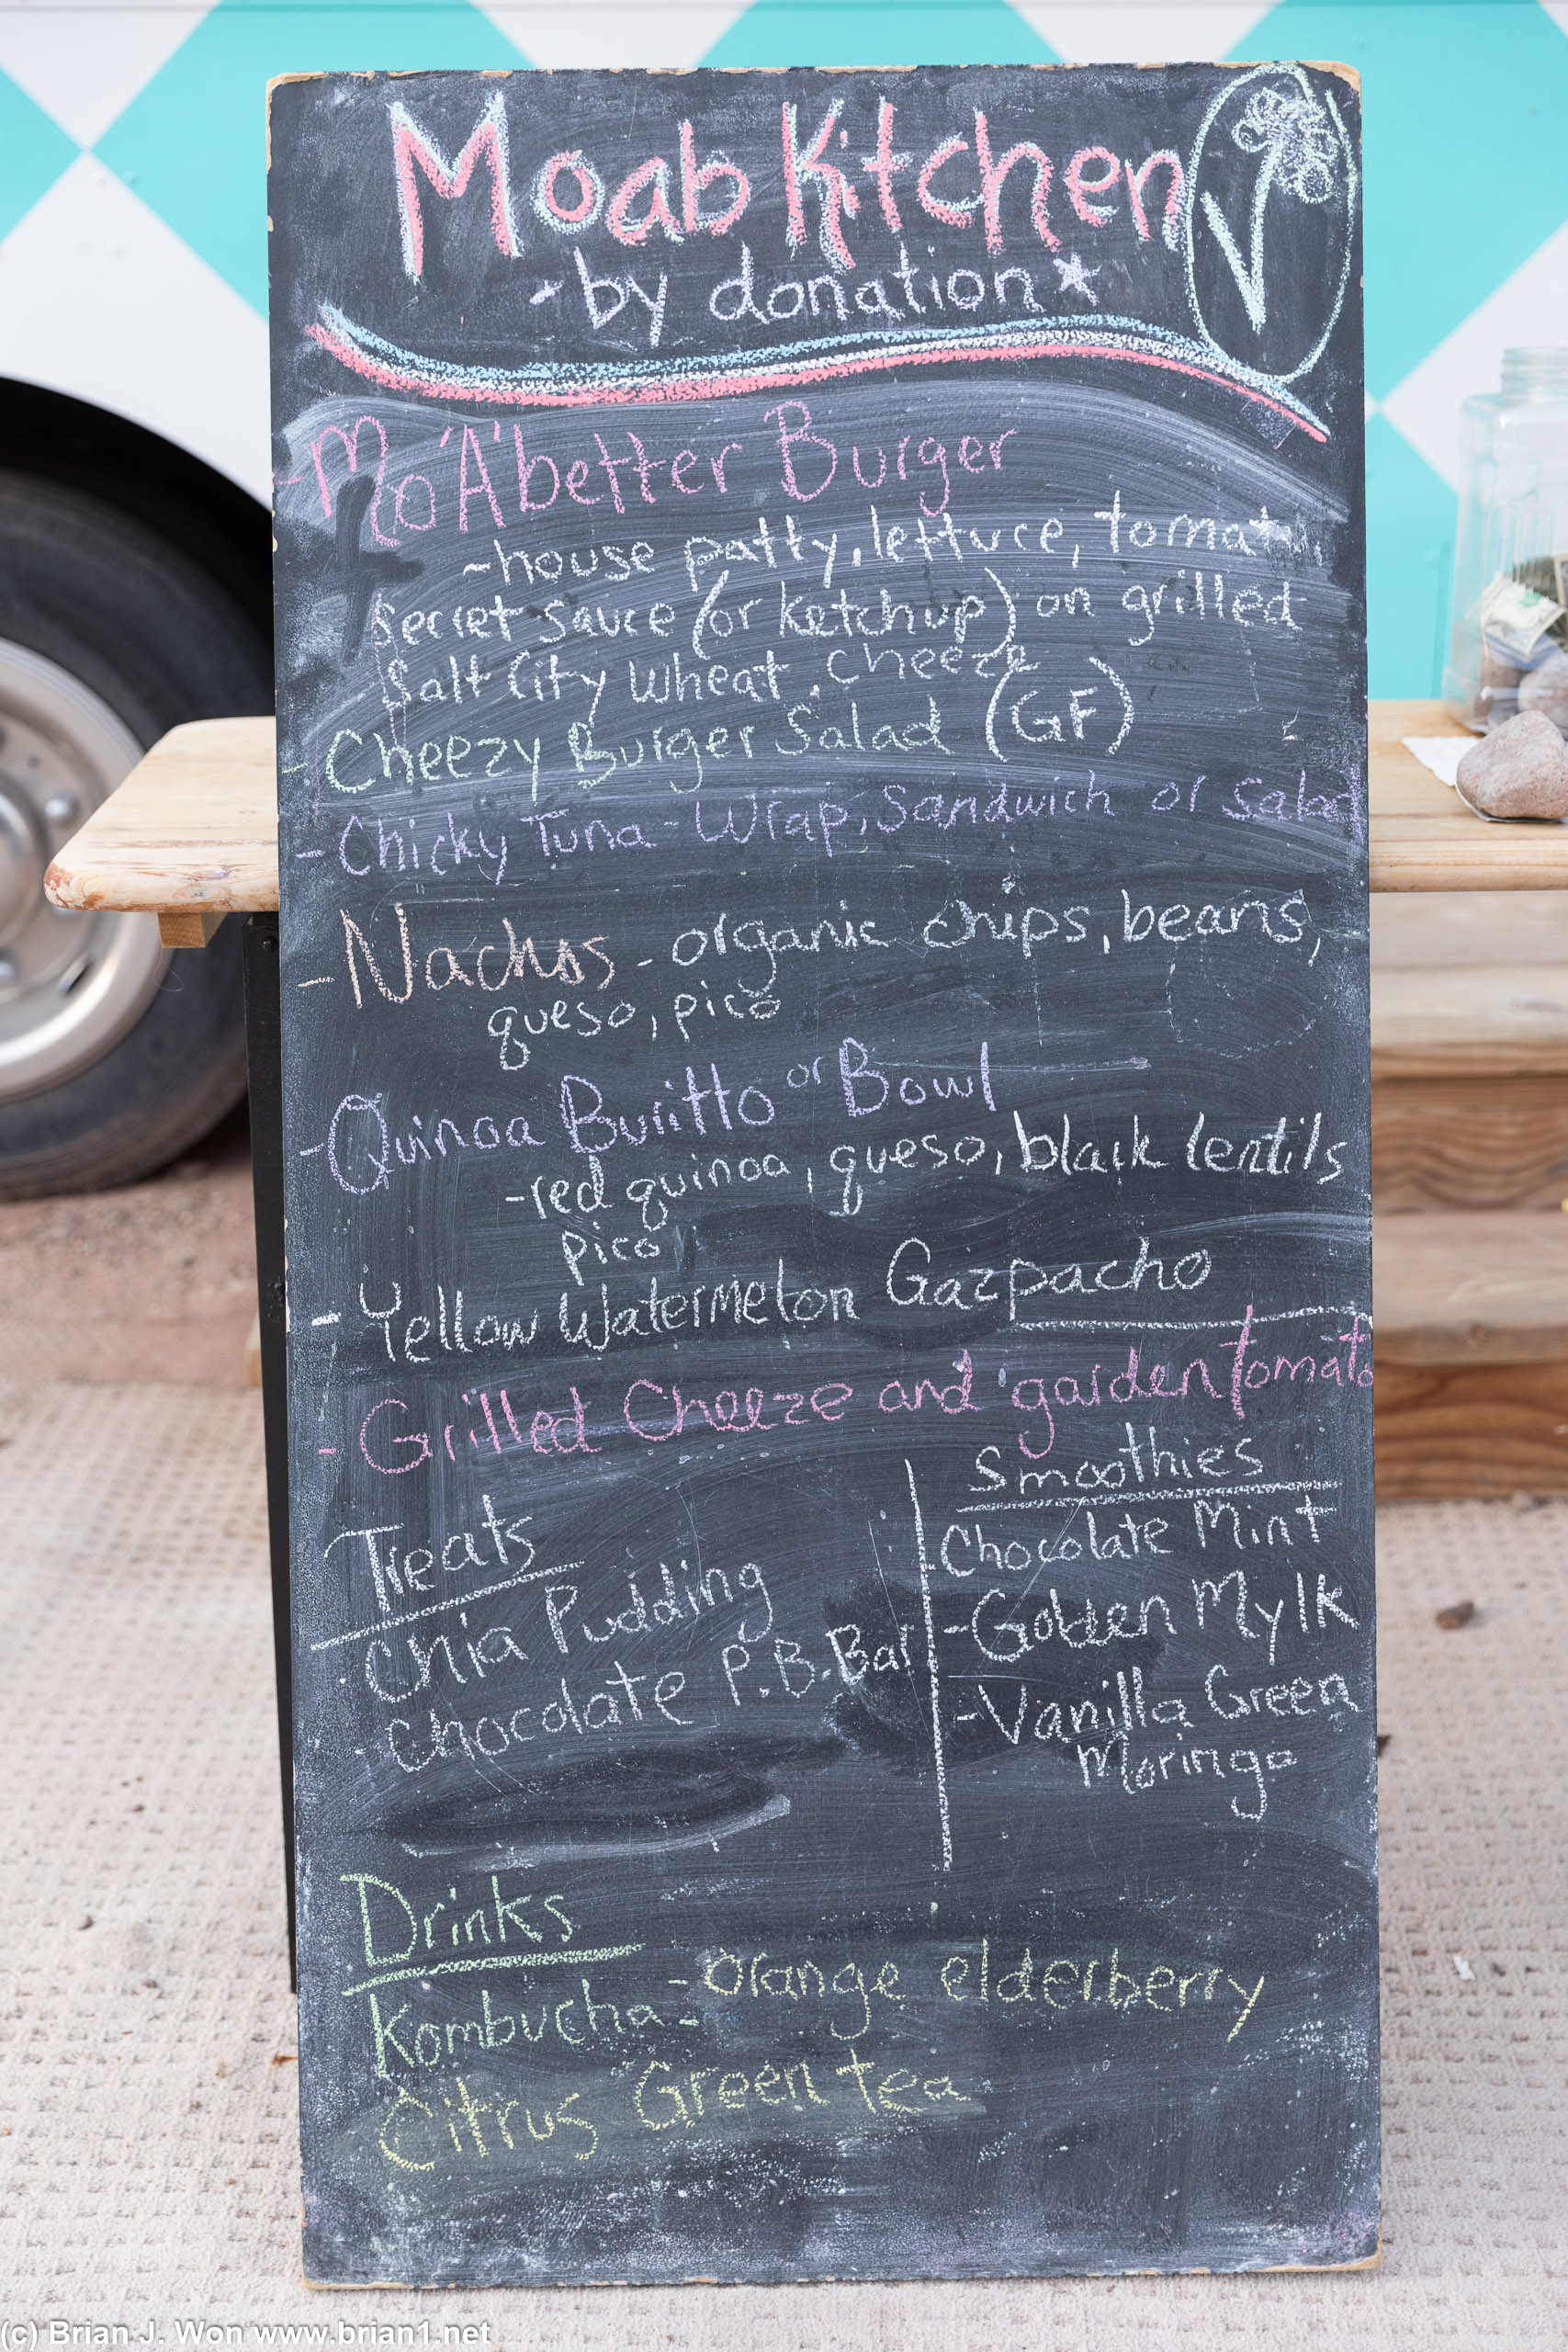 Moab Kitchen
- by donation *
V
- Mo'A'better Burger
- house patty, lettuce, tomat
secret sauce (or ketchup) on grilled
Salt City Wheat, cheeze
- Cheezy Burger Salad (GF)
- Chicky Tuna - Wrap, Sandwich or Salad
- Nachos - organic chips, beans,
queso, pico
- Quinoa Buritto or Bowl
- red quinoa, queso, black lentils
pico
- Yellow Watermelon Gazpacho
- Grilled Cheeze and garden tomato
Treats
Chia Pudding
Chocolate P.B. Bar
Smoothies
Chocolate Mint
- Golden Mylk
- Vanilla Green
Moringa
Drinks
Kombucha - Orange elderberry
Citrus Green tea
(c) Brian J. Won www.brian1.net